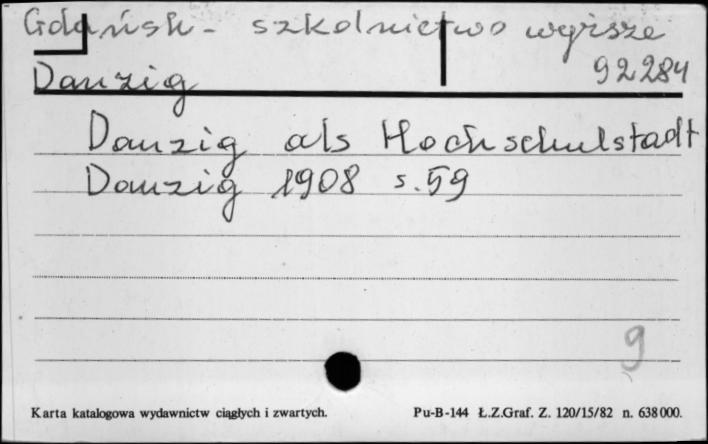 Gdańsk - szkolnictwo wyższe
Danzig 92284
Danzig als Hochschulstadt
Danzig 1908 s. 59
9
Karta katalogowa wydawnictw ciągłych i zwartych. Pu-B-144 Ł.Z.Graf. Z. 120/15/82 n. 638000.